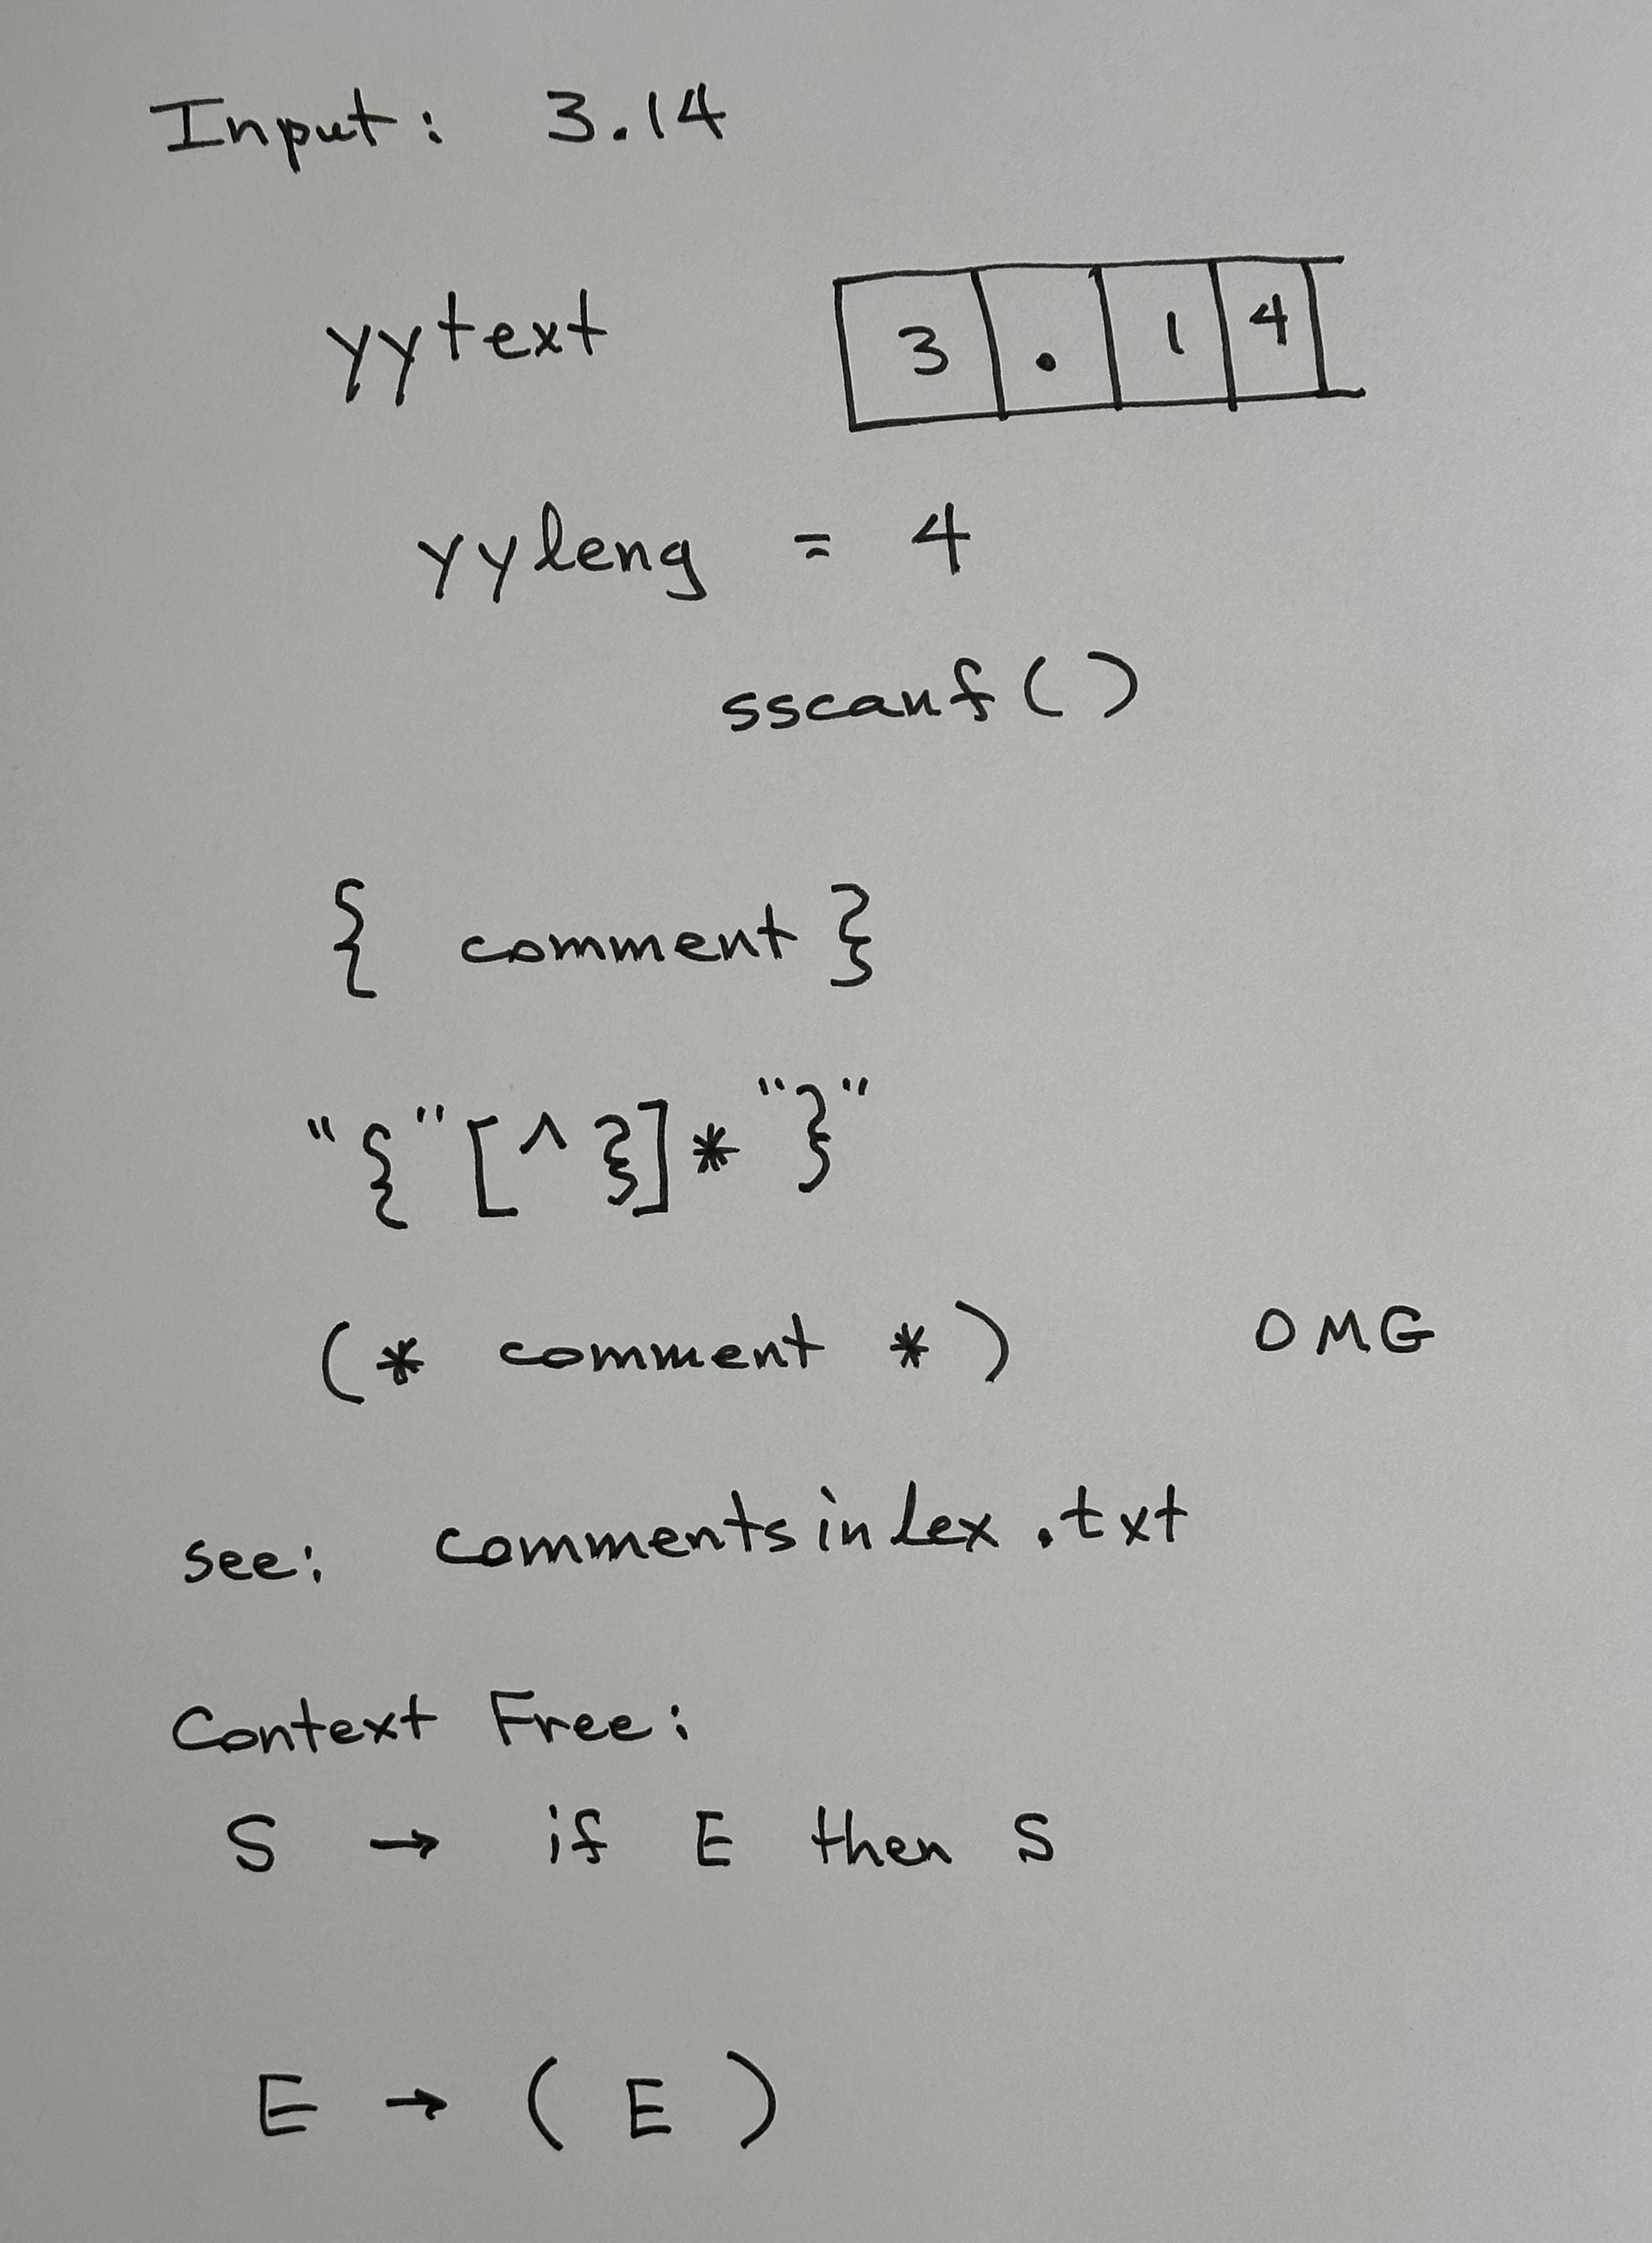 Input: 3.14
yytext 3 . 1 4
yyleng = 4
sscanf()
{ comment }
"{"[^}]*"}"
(* comment *) OMG
see: commentsinLex.txt
Context Free:
S → if E then S
E → ( E )